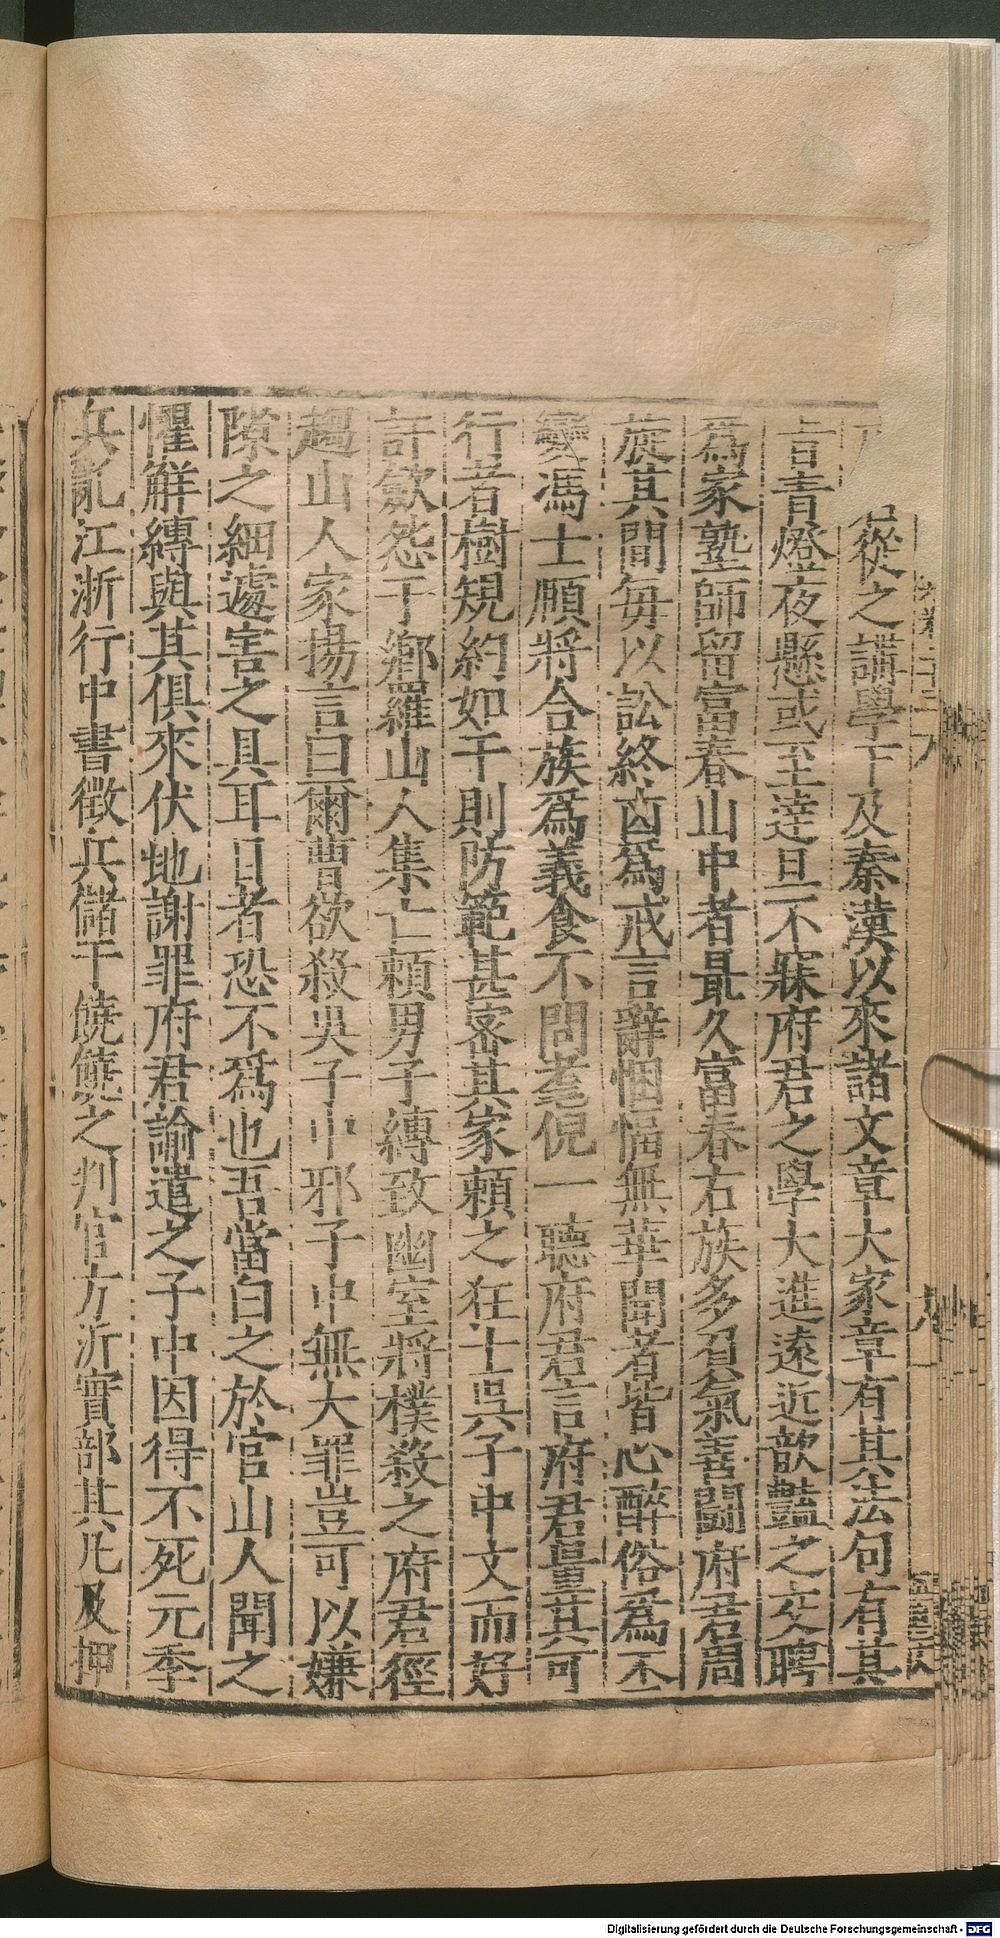 從之講學下及秦漢以來諸文章大家章有其法句有其
旨青燈夜懸或至達旦不寐府君之學大進遠近歆豔之交聘
爲家塾師留富春山中者最久富春右族多負氣善鬪府君周
旋其間毎以訟終凶爲戒言辭悃愊無華聞者皆心醉俗爲丕
變馮士頤將合族爲義食不問耄倪一聽府君言府君量其可
行者樹䂓約如干則防範甚宻其家頼之狂士吳子中文而好
訐歛怨于鄉羅山人集亡頼男子縛致幽室將樸殺之府君徑
趨山人家揚言曰爾曹欲殺吳子中邪子中無大罪豈可以嫌
隙之細遽害之具耳目者恐不爲也吾當白之於官山人聞之
懼觧縛與其俱來伏地謝罪府君諭遣之子中因得不死元季
兵亂江浙行中書徵兵儲于饒饒之判官方沂實部其凡及押
Digitalisierung gefördert durch die Deutsche Forschungsgemeinschaft - DFG